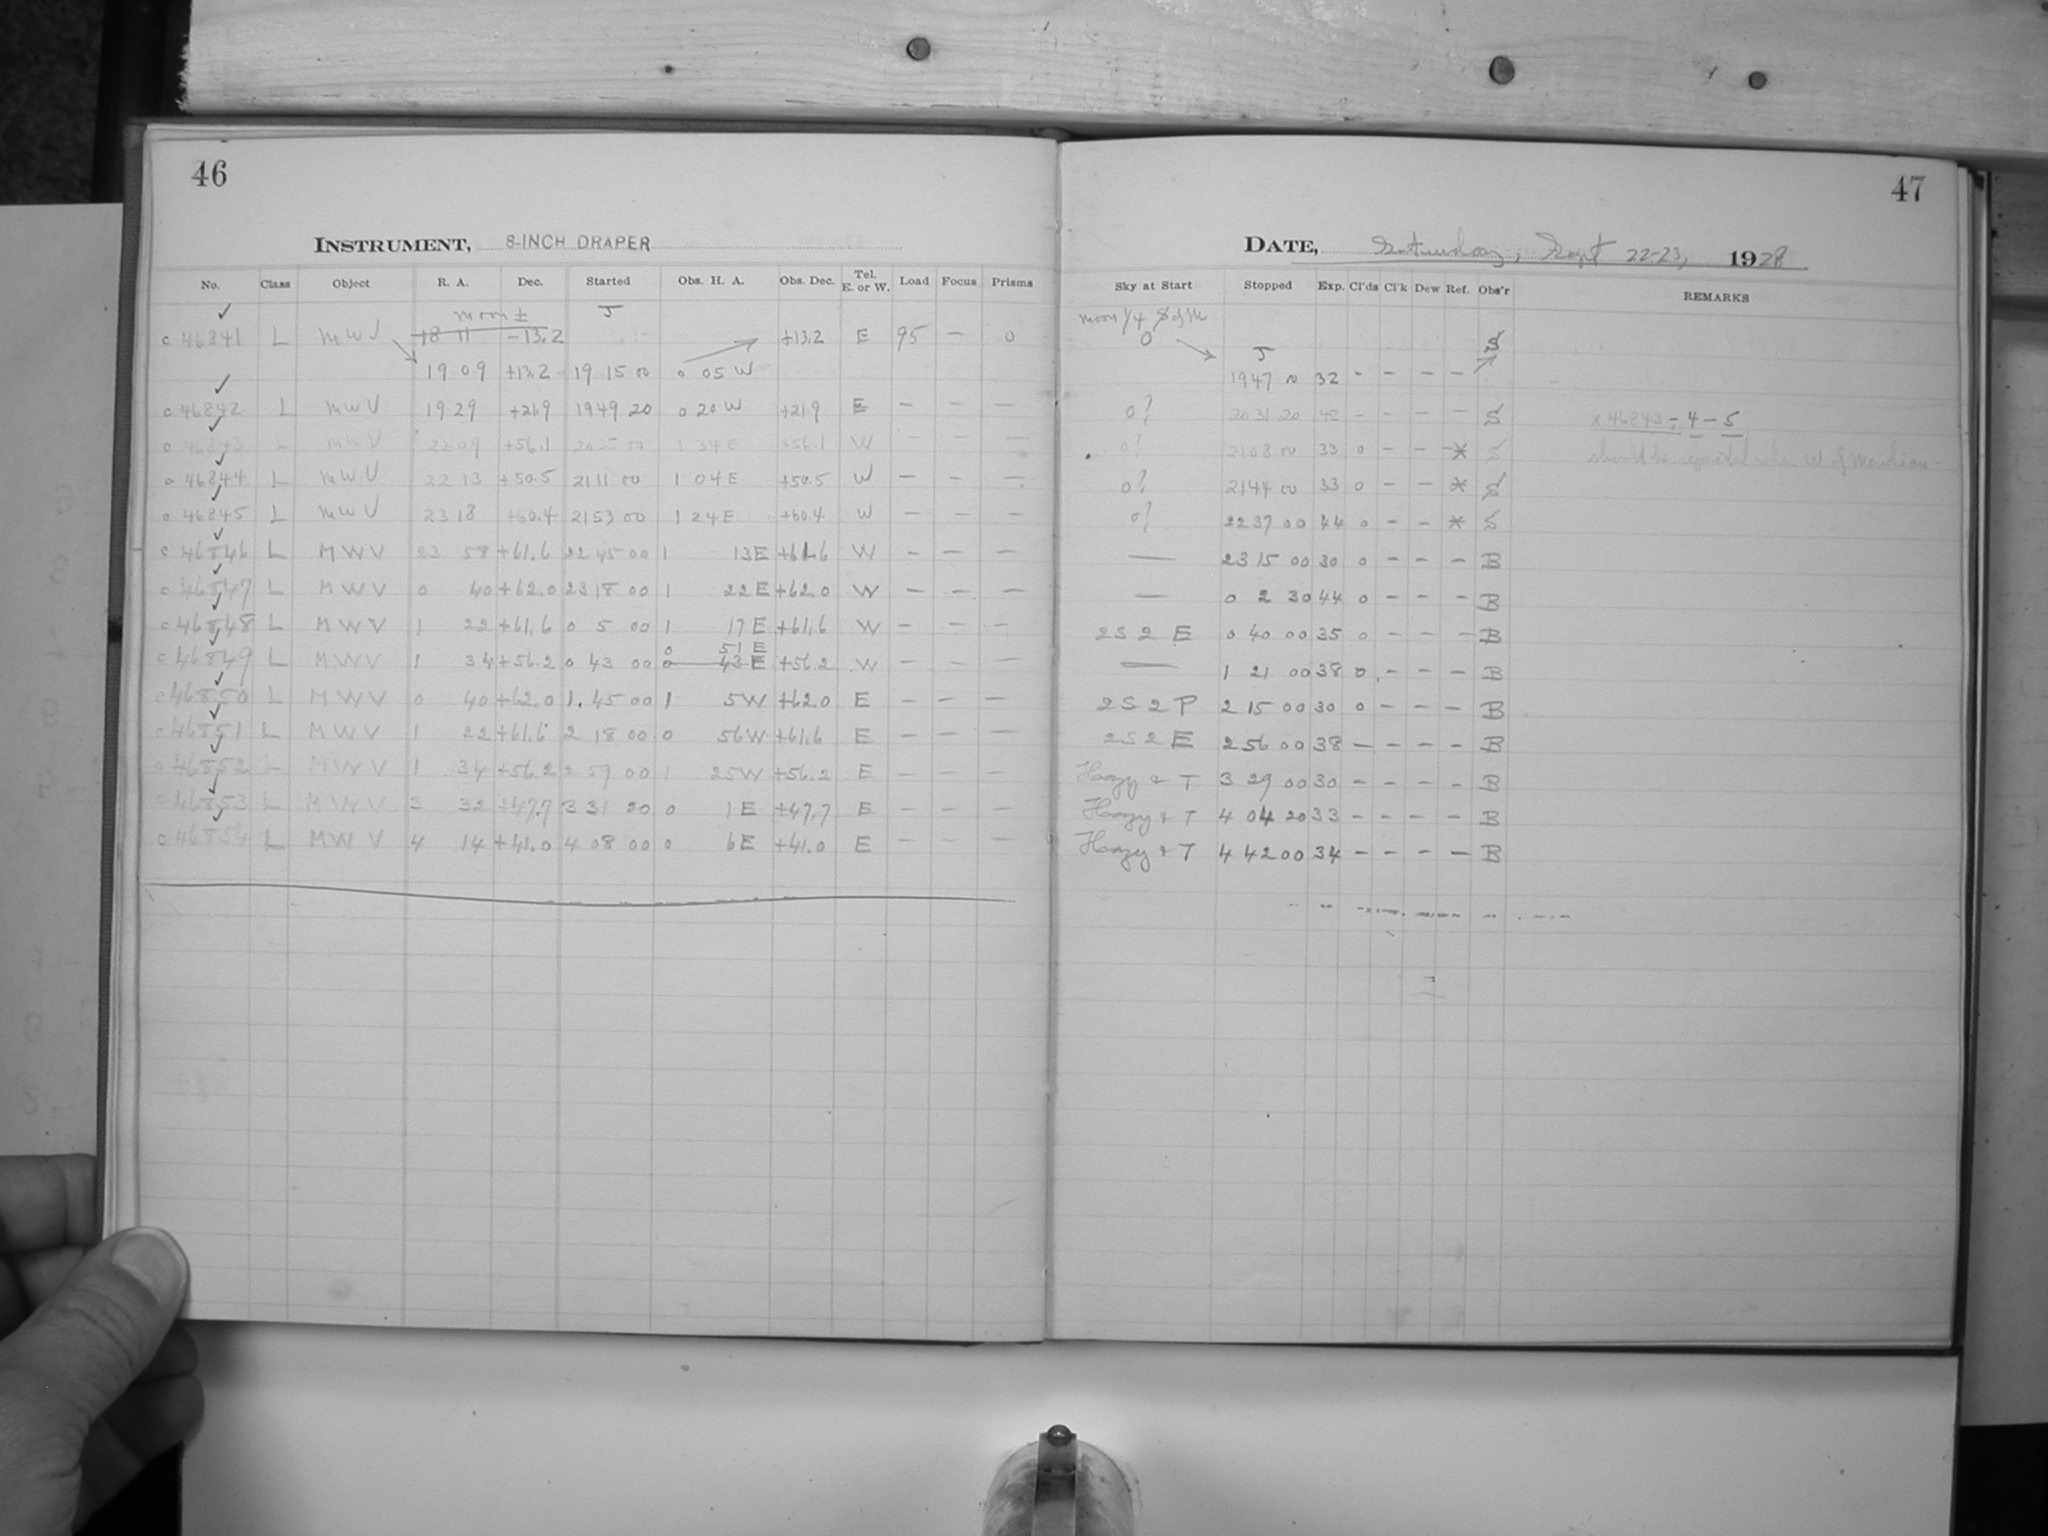 46
INSTRUMENT, 8-INCH DRAPER
No. Class Object R. A. Dec. Started Obs. H. A. Obs. Dec. Tel. E. or W. Load Focus Prisms
moon ± J
c 46841 L MWV 18 11 -13.2 +13.2 E 95 – 0
19 09 +13.2 19 15 00 0 05 W
c 46842 L MWV 19 29 +21.9 1949 20 0 20 W +21.9 E – – –
c 46843 L MWV 22 09 +56.1 2035 00 1 34 E +56.1 W – – –
c 46844 L MWV 22 13 +50.5 2111 00 1 04 E +50.5 W – – –
c 46845 L MWV 23 18 +60.4 2153 00 1 24 E +60.4 W – – –
c 46846 L MWV 23 58 +61.6 22 45 00 1 13 E +61.6 W – – –
c 46847 L MWV 0 40 +62.0 23 18 00 1 22 E +62.0 W – – –
c 46848 L MWV 1 22 +61.6 0 5 00 1 17 E +61.6 W – – –
0 51 E
c 46849 L MWV 1 34 +56.2 0 43 00 0 43 E +56.2 W – – –
c 46850 L MWV 0 40 +62.0 1 45 00 1 5 W +62.0 E – – –
c 46851 L MWV 1 22 +61.6 2 18 00 0 56 W +61.6 E – – –
c 46852 L MWV 1 34 +56.2 2 59 00 1 25 W +56.2 E – – –
c 46853 L MWV 3 32 +47.7 3 31 20 0 1 E +47.7 E – – –
c 46854 L MWV 4 14 +41.0 4 08 00 0 6 E +41.0 E – – –
47
DATE, Saturday, Sept 22-23, 1928
Sky at Start Stopped Exp. Cl'ds Cl'k Dew Ref. Obs'r REMARKS
moon 1/4 S of M
0 J S
1947 00 32 – – – –
0? 20 31 20 42 – – – – S x 46843 – 4 – 5
0? 2108 00 33 0 – – * S should be repeated when W of Meridian.
0? 2144 00 33 0 – – * S
0? 2237 00 44 0 – – * S
— 23 15 00 30 0 – – – B
— 0 2 30 44 0 – – – B
2 S 2 E 0 40 00 35 0 – – – B
— 1 21 00 38 0 – – – B
2 S 2 P 2 15 00 30 0 – – – B
2 S 2 E 2 56 00 38 – – – – B
Hazy & T 3 29 00 30 – – – – B
Hazy & T 4 04 20 33 – – – – B
Hazy & T 4 42 00 34 – – – – B